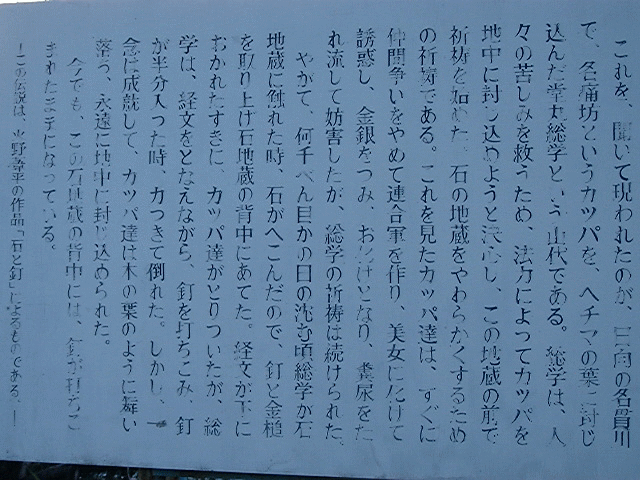 これを、聞いて現われたのが、日向の名貫川
で、名痛坊というカッパを、ヘチマの葉に封じ
込んだ堂丸総学という山伏である。総学は、人
々の苦しみを救うため、法力によってカッパを
地中に封じ込めようと決心し、この地蔵の前で
祈祷を始めた。石の地蔵をやわらかくするため
の祈祷である。これを見たカッパ達は、すぐに
仲間争いをやめて連合軍を作り、美女に化けて
誘惑し、金銀をつみ、おばけとなり、糞尿をた
れ流して妨害したが、総学の祈祷は続けられた。
やがて、何千べん目かの日の沈む頃総学が石
地蔵に触れた時、石がへこんだので、釘と金槌
を取り上げ石地蔵の背中にあてた。経文が下に
おかれたすきに、カッパ達がとりついたが、総
学は、経文をとなえながら、釘を打ちこみ、釘
が半分入った時、力つきて倒れた。しかし、一
念は成就して、カッパ達は木の葉のように舞い
落ち、永遠に地中に封じ込められた。
今でも、この石地蔵の背中には、釘が打ちこ
まれたままになっている。
－この伝説は、火野葦平の作品「石と釘」によるものである。－